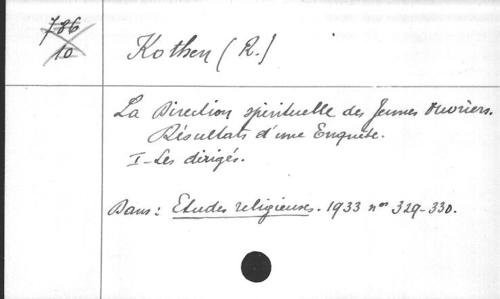 786
10
Kothen (R.)
La Direction spirituelle des Jeunes Ouvriers.
Résultats d'une Enquête.
I-Les dirigés.
Dans: Etudes religieuses. 1933 nos 329-330.